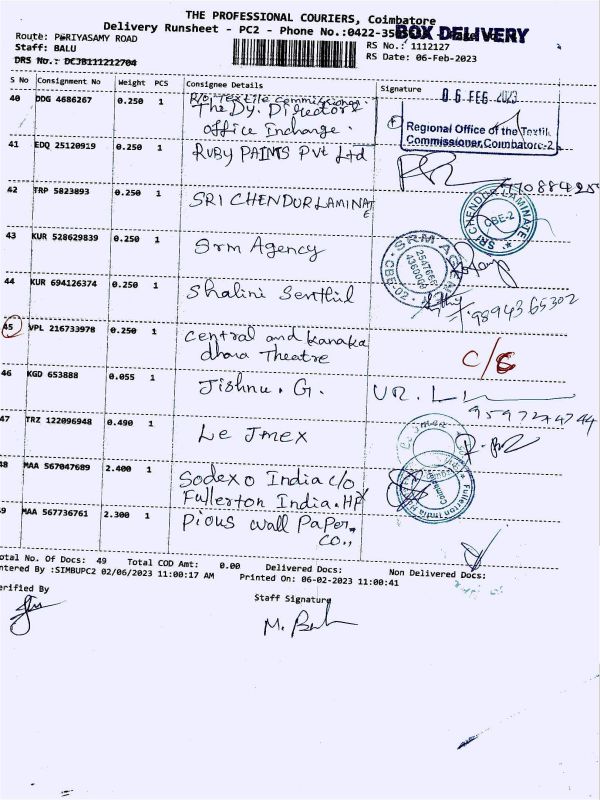 THE PROFESSIONAL COURIERS, Coimbatore
Delivery Runsheet - PC2 - Phone No.:0422-35
BOX DELIVERY
Route: PERIYASAMY ROAD
RS No.: 1112127
Staff: BALU
RS Date: 06-Feb-2023
DRS No.: DCJB111212704
S No Consignment No Weight PCS Consignee Details Signature
06 FEB 2023
40 DDG 4686267 0.250 1 R/o Textile Commissioner
The Dy. Director
office Incharge.
Regional Office of the Textile
Commissioner, Coimbatore-2
41 EDQ 25120919 0.250 1 RUBY PAINTS Pvt Ltd
42 TRP 5823893 0.250 1 SRI CHENDUR LAMINATE
SRI CHENDUR LAMINATE
CBE-2
43 KUR 528629839 0.250 1 Srm Agency
SRM AGEN
CBE-02
44 KUR 694126374 0.250 1 Shalini Senthil
9894365302
45 VPL 216733978 0.250 1 Central and Kanaka
dhara Theatre
C/S
46 KGD 653888 0.055 1 Jishnu. G.
9597274744
47 TRZ 122096948 0.490 1 Le Jmex
48 MAA 567047689 2.400 1 Sodexo India c/o
Fullerton India. HP
Fullerton India H
49 MAA 567736761 2.300 1 Pious wall Paper.
co.,
Total No. Of Docs: 49 Total COD Amt: 0.00 Delivered Docs: Non Delivered Docs:
Entered By :SIMBUPC2 02/06/2023 11:00:17 AM Printed On: 06-02-2023 11:00:41
Verified By
Staff Signature